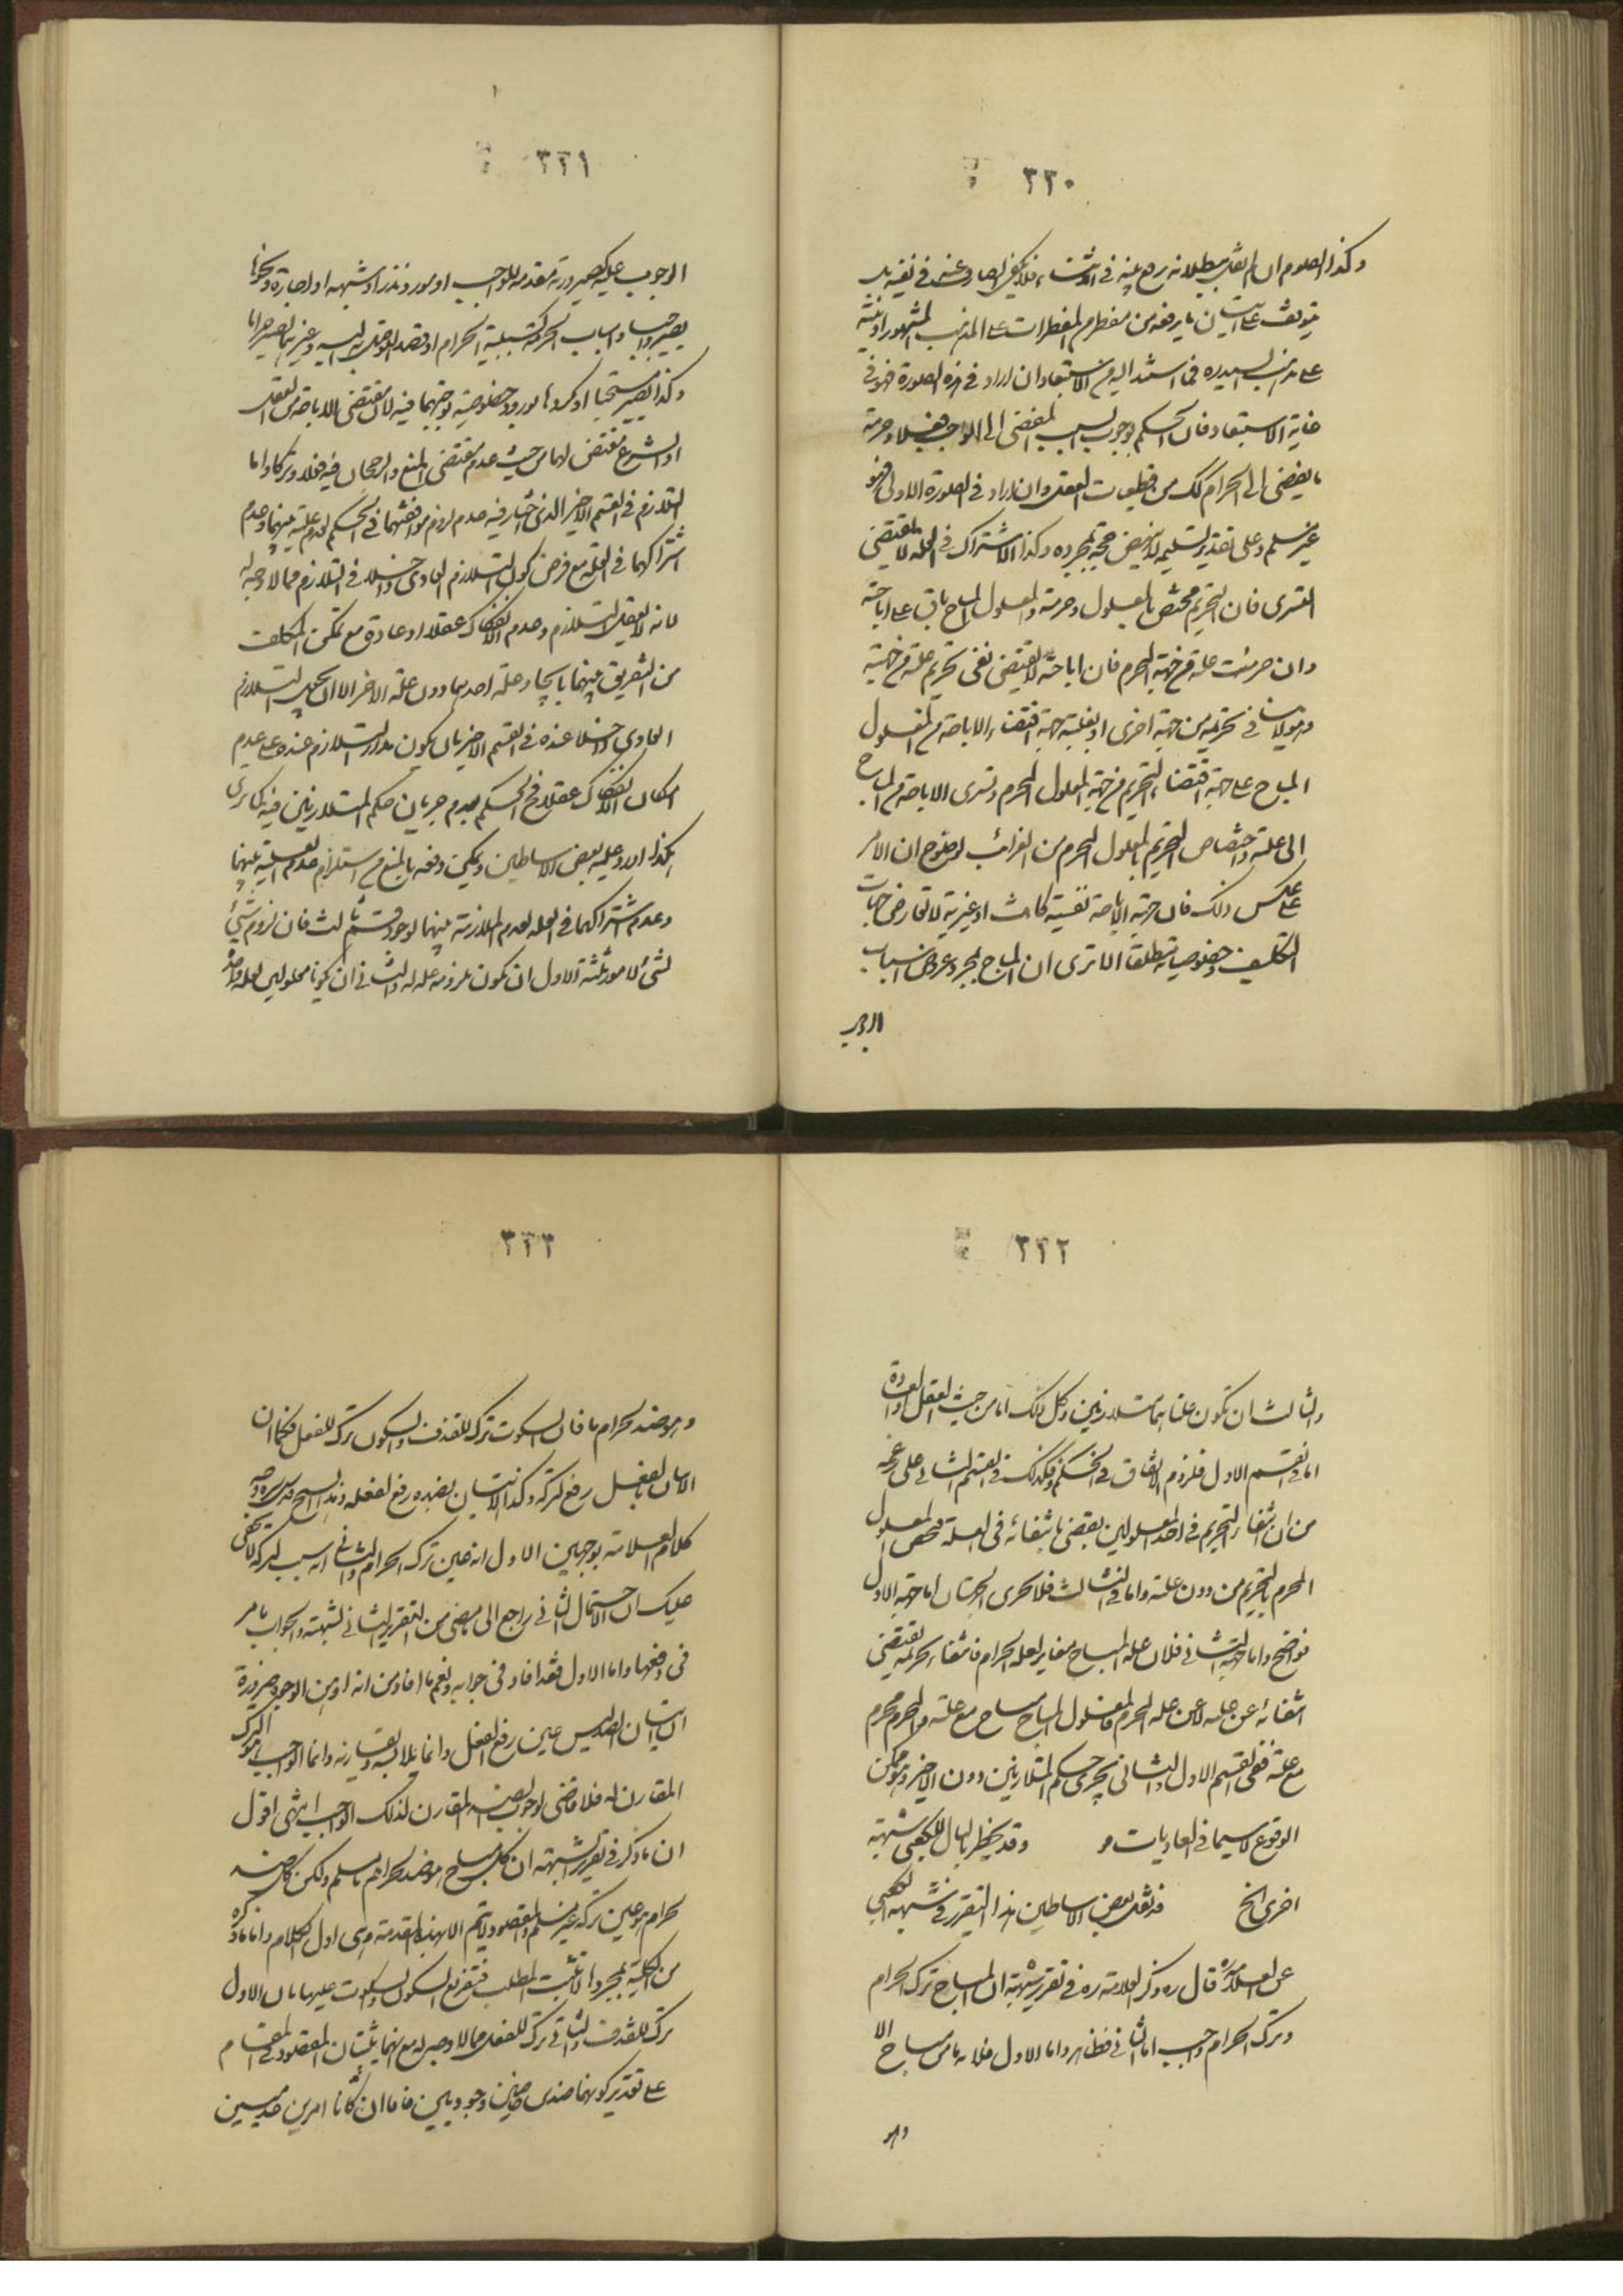 ٣٢٠
وكذا الصوم ان لم نقل ببطلانه برفع نيته في الاثناء فلا يكفي الصارف عنه في تفريد
يتوقف على اتيان ما يرفعه من مفطر من المفطرات على المذهب المشهور او نيته
على مذهب السيد ره فما استند اليه من الاستبعاد ان اراد في هذه الصورة فهو في
غاية الاستبعاد فان الحكم بوجوب السبب المفضي الى الواجب فعلا وحرمة
ما يفضي الى الحرام كك من قطعيات العقل وان اراد في الصورة الاولى فهو
غير مسلم وعلى تقدير تسليمه لا ينهض حجة بمجرده وكذا الاشتراك في العلة لا يقتضي
التسري فان التحريم مختص بالمعلول وحرمته والمعلول المباح باق على اباحته
وان حرمت علته من جهة المحرم فان اباحته لا يقتضي نفي تحريم علته من جهته
وهو لا ينافي تحريمه من جهة اخرى او بغلبة جهة اقتضاء الاباحة من المعلول
المباح على جهة اقتضاء التحريم من جهة المعلول المحرم وتسري الاباحة من المباح
الى علته واختصاص التحريم بالمعلول المحرم من الغرائب لوضوح ان الامر
على عكس ذلك فان جهة الاباحة نفسية كانت او غيرية لا تعارض جهات
التكليف وخصوصياته مطلقا الا ترى ان المباح بمجرد عروض اسباب
الوجوب
٣٢١
الوجوب عليه كصيرورته مقدمة للواجب او مورد نذر او شبهه او اجارة ونحوها
يصير واجبا واسباب الحرمة كسببية الحرام او قصد التوصل به اليه وغيرهما يصير حراما
وكذا يصير مستحبا او مكروها بورود خصوصية توجبهما فيه لان مقتضى الاباحة من العقل
او الشرع مقتضى لها من حيث عدم مقتضى المنع والرجحان فيه فعلا وتركا واما
التلازم في القسم الاخير الذي اختار فيه عدم لزوم موافقتهما في الحكم لعدم علية بينهما وعدم
اشتراكهما في العلة مع فرض كون التلازم العادي داخلا في التلازم فمما لا وجه له
لانه لا يعقل التلازم وعدم الانفكاك عقلا او عادة مع تمكن المكلف
من التفريق بينهما بايجاد علة احدهما دون علة الاخر الا ان يجعل التلازم
العادي داخلا عنده في القسم الاخير بان يكون مدار التلازم عنده على عدم
امكان الانفكاك عقلا فح الحكم بعدم جريان حكم المتلازمين فيه كما ترى
هكذا اورد عليه بعض الاساطين ويمكن دفعه بالمنع من استلزام عدم العلية بينهما
وعدم اشتراكهما في العلة لعدم الملازمة بينهما لوجود قسم ثالث فان لزوم شيء
لشيء لامور ثلثة الاول ان يكون ملزومه علة له والثاني ان يكونا معلولين لعلة واحدة
٣٢٢
والثالث ان تكون علتاهما متلازمين وكل ذلك اما من حيث العقل او العادة
اما في القسم الاول فلزوم الاتفاق في الحكم وكذلك في القسم الثاني على زعمه
من ان انتفاء التحريم في احد المعلولين يقضي بانتفائه في العلة فيختص المعلول
المحرم بالتحريم من دون علته واما في الثالث فلا يجري الوجهان اما جهة الاول
فواضح واما جهة الثاني فلان علة المباح مغاير لعلة الحرام فانتفاء تحريمه يقتضي
انتفائه عن علته لا عن علة المحرم فالمعلول المباح مباح مع علته والمحرم محرم
مع علته ففي القسم الاول والثاني يجري حكم المتلازمين دون الاخير وهو ممكن
الوقوع لا سيما في العاديات و وقد يخطر بالبال للكعبي شبهة
اخرى الخ قد نقل بعض الاساطين هذا التقرير في شبهة الكعبي
عن العلامة ره قال ره وذكر العلامة ره في تقرير شبهة ان المباح ترك الحرام
وترك الحرام واجب اما الثاني فظاهر واما الاول فلانه ما من مباح الا
وهو
٣٢٣
وهو ضد لحرام ما فان السكوت ترك للقذف والسكون ترك للفعل فكما ان
الاتيان بالفعل رفع لتركه وكذا الاتيان بضده رفع لفعله وقد
كلام العلامة بوجهين الاول انه عين ترك الحرام والثاني انه سبب لتركه لا يخفى
عليك ان الاحتمال الثاني راجع الى ما مضى من التقرير الثاني لشبهته والجواب ما مر
في دفعها واما الاول فقد افاد في جوابه ونعم ما افاد من انه اوهن الوجوه ضرورة
ان اتيان الضد ليس عين رفع الفعل وانما يلابسه ويقارنه وانما الواجب هو الترك
المقارن له فلا قاضي لوجوب الضد المقارن لذلك الواجب انتهى اقول
ان ما ذكر في تقرير الشبهة ان كل مباح هو ضد لحرام ما مسلم ولكن كل ضد
لحرام هو عين تركه غير مسلم والمقصود لا يتم الا بهذه المقدمة وهي اول الكلام واما ما ذكره
من الكلية بمجردها لا تثبت المطلب فتفريع السكون والسكوت عليها بان الاول
ترك للقذف والثاني ترك للفعل مما لا وجه له مع انهما يثبتان المقصود في المقام
على تقدير كونهما ضدين خاصين وجوديين فاما ان كانا امرين عدميين